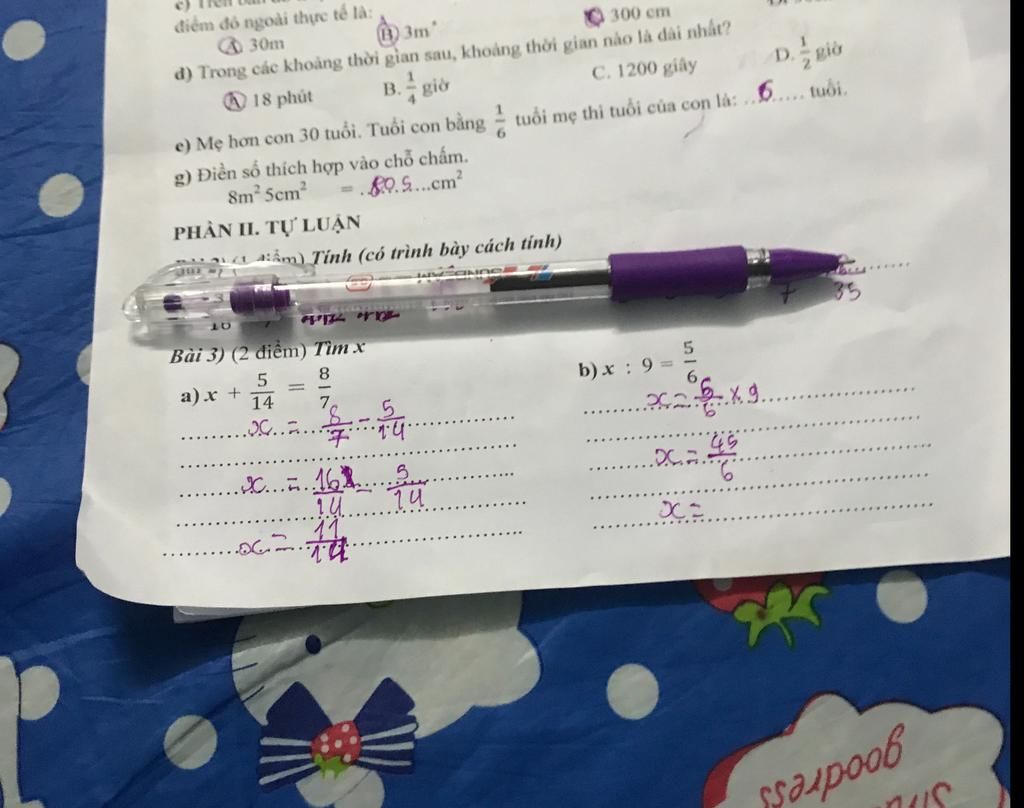 điểm đó ngoài thực tế là:
A 30m B 3m C 300 cm
d) Trong các khoảng thời gian sau, khoảng thời gian nào là dài nhất?
A 18 phút B. 1/4 giờ C. 1200 giây D. 1/2 giờ
e) Mẹ hơn con 30 tuổi. Tuổi con bằng 1/6 tuổi mẹ thì tuổi của con là: ...6..... tuổi.
g) Điền số thích hợp vào chỗ chấm.
8m² 5cm² = .805...cm²
PHẦN II. TỰ LUẬN
(1 điểm) Tính (có trình bày cách tính)
7 35
Bài 3) (2 điểm) Tìm x
a) x + 5/14 = 8/7
x = 8/7 - 5/14
x = 16/14 - 5/14
x = 11/14
b) x : 9 = 5/6
x = 5/6 x 9
x = 45/6
x =
goodness